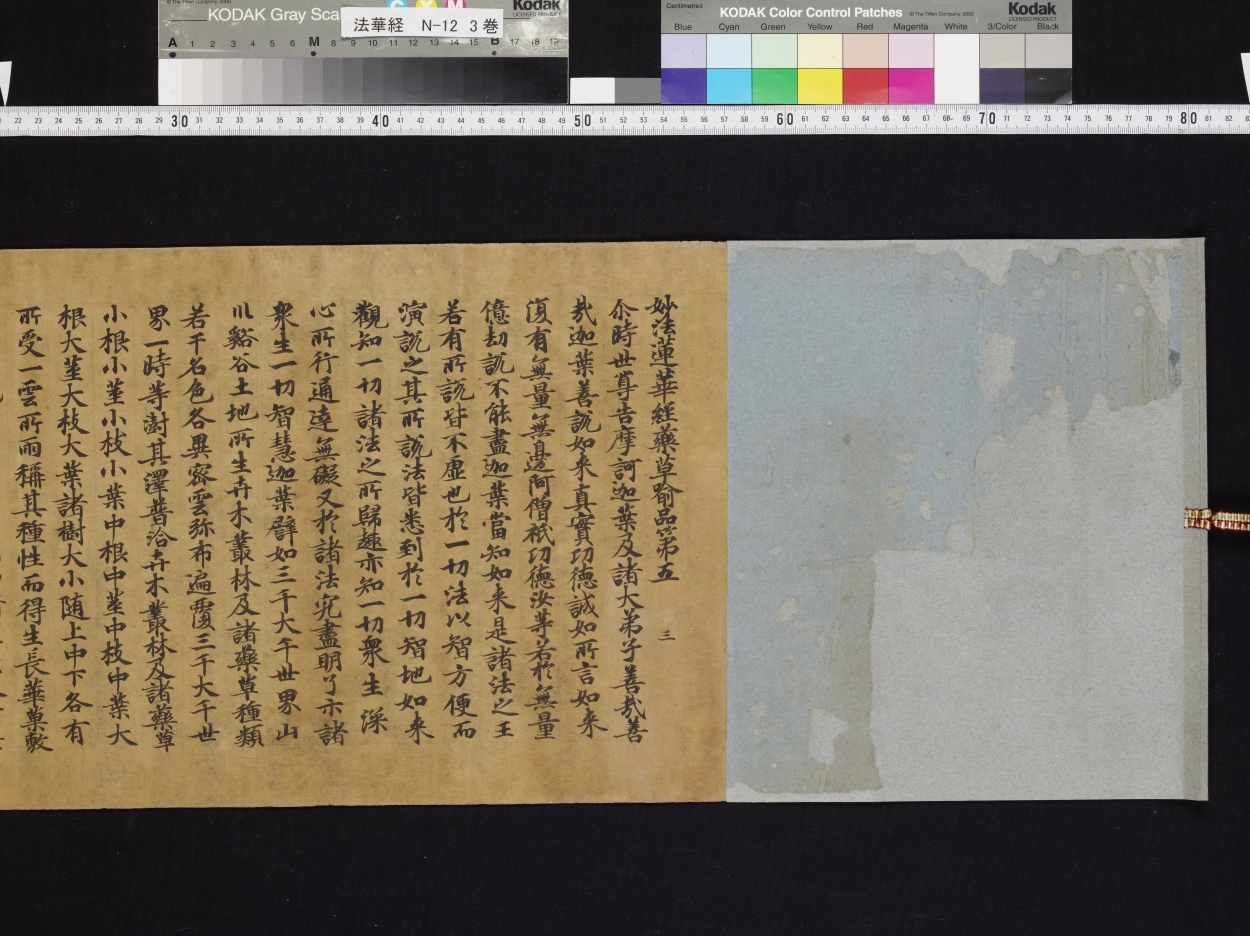 KODAK Gray Scale
© The Tiffen Company, 2000
Kodak
LICENSED PRODUCT
法華経 N-12 3巻
A 1 2 3 4 5 6 M 8 9 10 11 12 13 14 15 B 17 18 19
Centimetres
KODAK Color Control Patches
© The Tiffen Company, 2000
Kodak
LICENSED PRODUCT
Blue Cyan Green Yellow Red Magenta White 3/Color Black
22 23 24 25 26 27 28 29 30 31 32 33 34 35 36 37 38 39 40 41 42 43 44 45 46 47 48 49 50 51 52 53 54 55 56 57 58 59 60 61 62 63 64 65 66 67 68 69 70 71 72 73 74 75 76 77 78 79 80 81 82
妙法蓮華經藥草喻品第五 三
尒時世尊告摩訶迦葉及諸大弟子善哉善
哉迦葉善說如来真實功德誠如所言如来
復有無量無邊阿僧祇功德汝等若於無量
億劫說不能盡迦葉當知如来是諸法之王
若有所說皆不虛也於一切法以智方便而
演說之其所說法皆悉到於一切智地如来
觀知一切諸法之所歸趣亦知一切衆生深
心所行通達無礙又於諸法究盡明了示諸
衆生一切智慧迦葉譬如三千大千世界山
川谿谷土地所生卉木叢林及諸藥草種類
若干名色各異密雲弥布遍覆三千大千世
界一時等澍其澤普洽卉木叢林及諸藥草
小根小莖小枝小葉中根中莖中枝中葉大
根大莖大枝大葉諸樹大小随上中下各有
所受一雲所雨稱其種性而得生長華菓敷